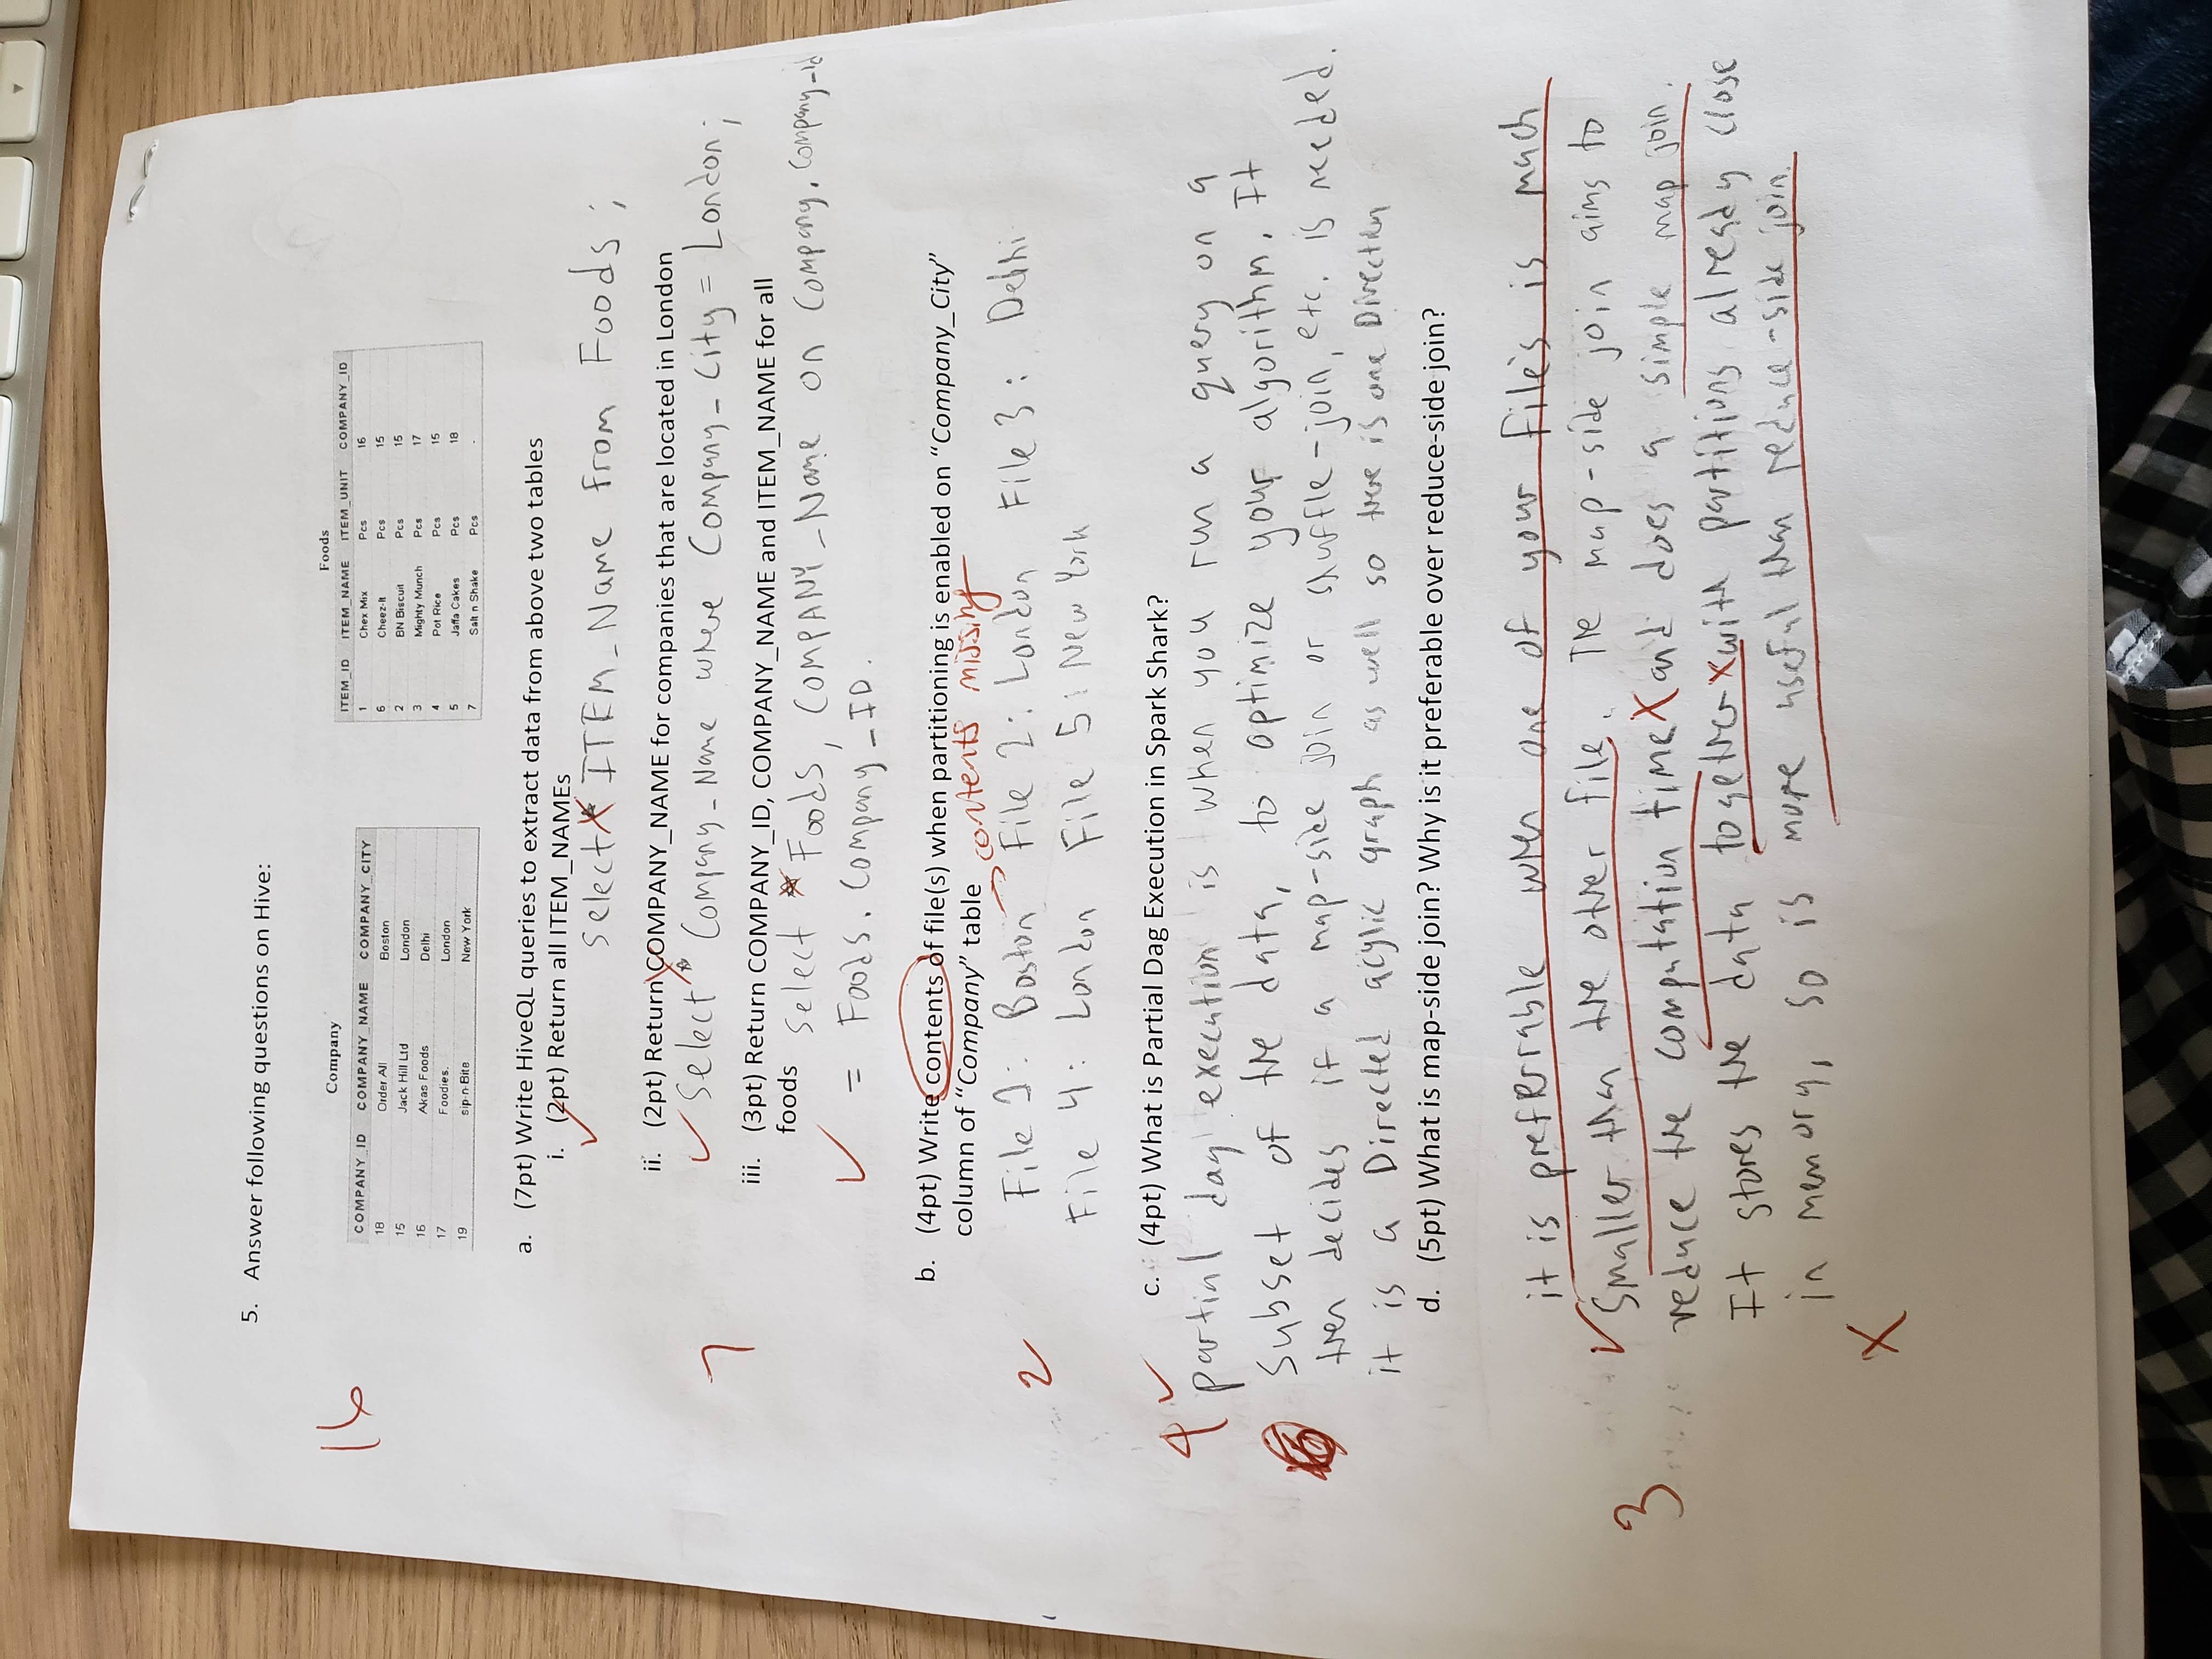 5. Answer following questions on Hive:
16
Company
COMPANY_ID COMPANY_NAME COMPANY_CITY
18 Order All Boston
15 Jack Hill Ltd London
16 Akas Foods Delhi
17 Foodies. London
19 sip-n-Bite New York
Foods
ITEM_ID ITEM_NAME ITEM_UNIT COMPANY_ID
1 Chex Mix Pcs 16
6 Cheez-It Pcs 15
2 BN Biscuit Pcs 15
3 Mighty Munch Pcs 17
4 Pot Rice Pcs 15
5 Jaffa Cakes Pcs 18
7 Salt n Shake Pcs -
a. (7pt) Write HiveQL queries to extract data from above two tables
i. (2pt) Return all ITEM_NAMEs
✓ Select * ITEM_Name from Foods;
ii. (2pt) Return COMPANY_NAME for companies that are located in London
✓ Select * Company_Name where Company_City = London;
7
iii. (3pt) Return COMPANY_ID, COMPANY_NAME and ITEM_NAME for all
foods Select * Foods, COMPANY_Name on Company.Company_id
✓ = Foods.Company_ID.
b. (4pt) Write contents of file(s) when partitioning is enabled on "Company_City"
column of "Company" table contents missing
2 File 1: Boston File 2: London File 3: Delhi
File 4: London File 5: New York
c. (4pt) What is Partial Dag Execution in Spark Shark?
4 ✓
partial dag execution is when you run a query on a
subset of the data, to optimize your algorithm. It
then decides if a map-side join or shuffle-join, etc. is needed.
it is a Directed acylic graph as well so there is one Direction
d. (5pt) What is map-side join? Why is it preferable over reduce-side join?
it is preferrable when one of your file's is much
✓ Smaller than the other file. The map-side join aims to
3
reduce the computation time X and does a simple map join.
It stores the data together X with partitions already close
in memory, so is more useful than reduce-side join.
X